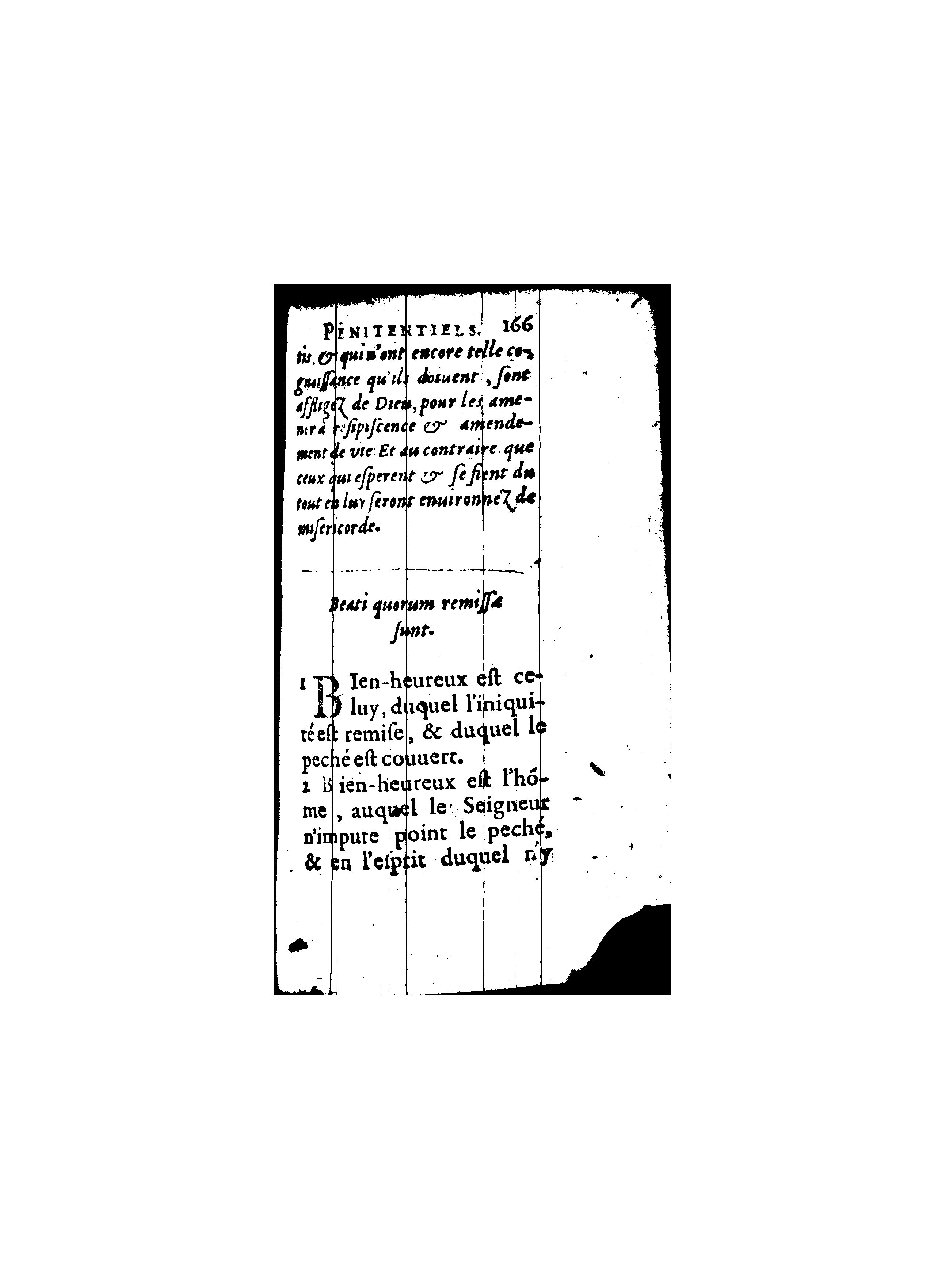 PENITENTIELS. 166
tis, & qui n'ont encore telle co-
gnoiſſance qu'ils doiuent, ſont
affligez de Dieu, pour les ame-
ner à reſipiſcence & amende-
ment de vie. Et au contraire que
ceux qui eſperent & ſe fient du
tout en luy ſeront enuironnez de
miſericorde.
Beati quorum remiſſæ
ſunt.
1 BIen-heureux eſt ce-
luy, duquel l'iniqui-
té eſt remiſe, & duquel le
peché eſt couuert.
2 Bien-heureux eſt l'hō-
me, auquel le Seigneur
n'impute point le peché,
& en l'eſprit duquel n'y